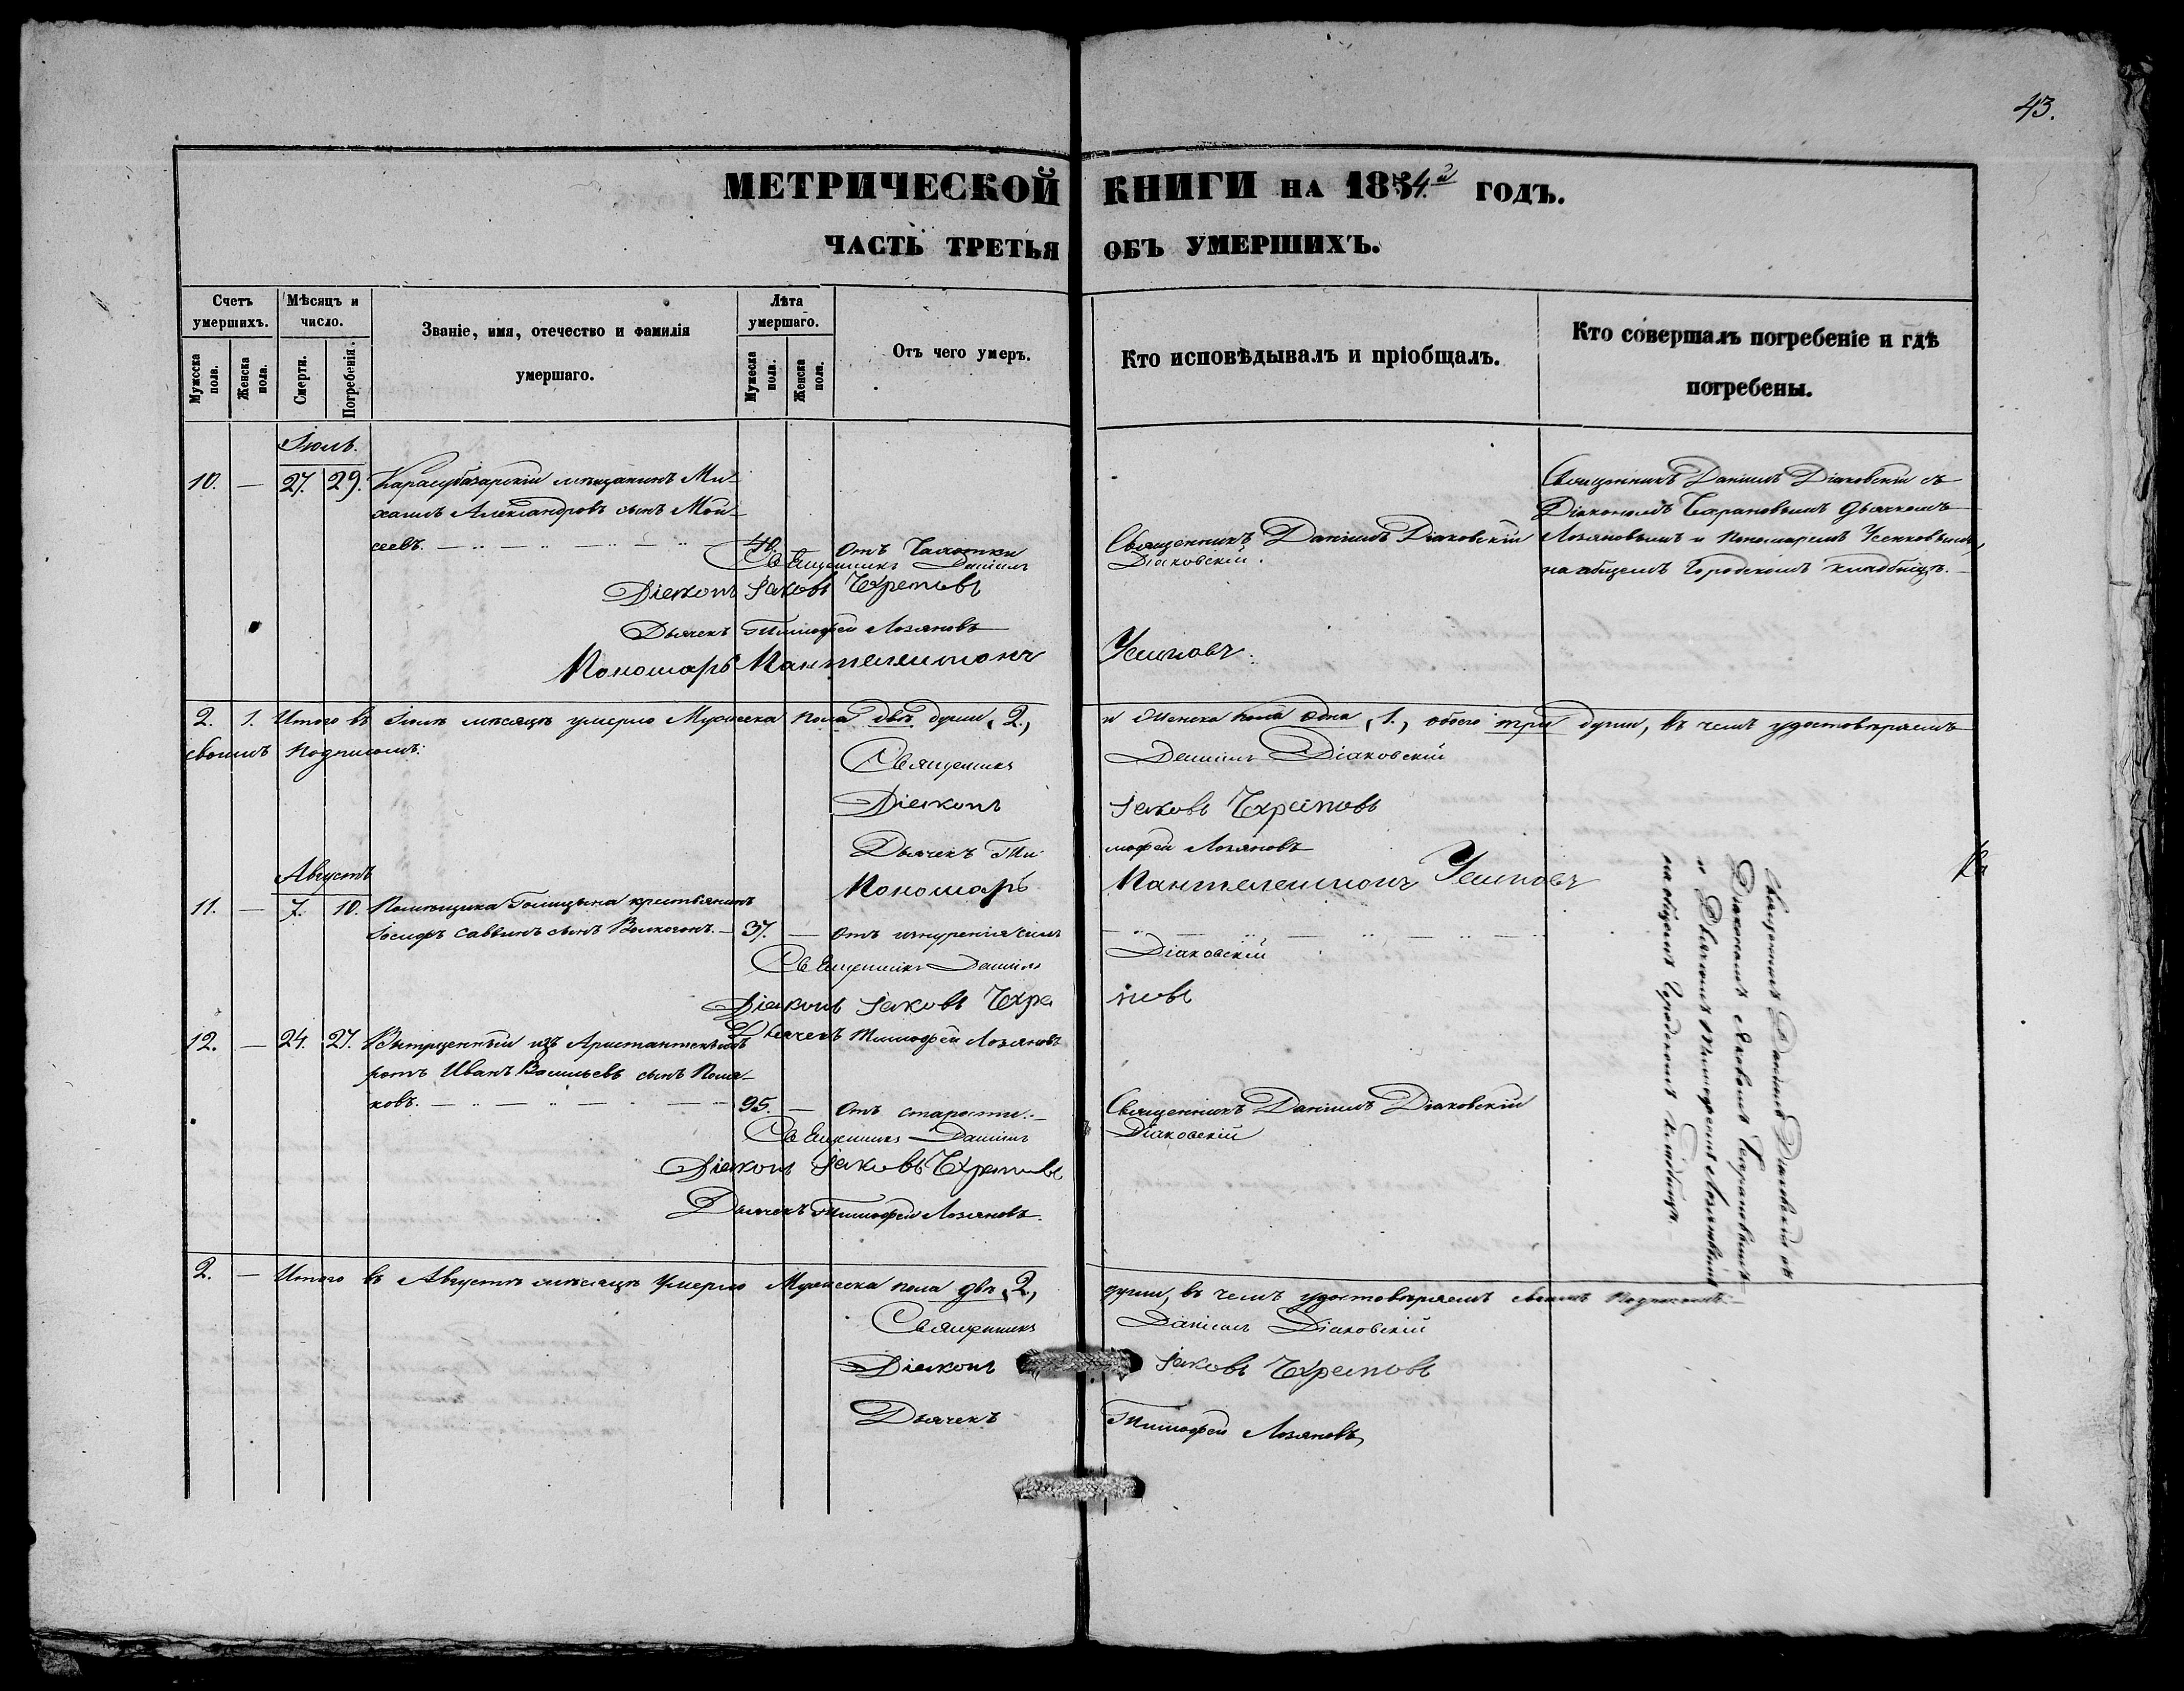 43.
МЕТРИЧЕСКОЙ КНИГИ НА 1854.й ГОДЪ.
ЧАСТЬ ТРЕТЬЯ ОБЪ УМЕРШИХЪ.
Счетъ умершихъ.
Мужеска пола.
Женска пола.
Мѣсяцъ и число.
Смерти.
Погребенія.
Званіе, имя, отечество и фамилія
умершаго.
Лѣта умершаго.
Мужеска пола.
Женска пола.
Отъ чего умеръ.
Кто исповѣдывалъ и пріобщалъ.
Кто совершалъ погребеніе и гдѣ
погребены.
Іюль.
10. — 27. 29. Карасубазарскій мѣщанинъ Ми-
хаилъ Александровъ сынъ Мой-
сеевъ. 40. Отъ Чахотки Священникъ Даніилъ Діаковскій
Священникъ Даніилъ Діаковскій съ
Діакономъ Чхрановымъ Дьячкомъ
Лозяновымъ и Пономаремъ
на общемъ Городскомъ кладбищѣ.
Священникъ Даніилъ Діаковскій.
Діаконъ Іаковъ
Дьячекъ Тимофей Лозяновъ
Пономарь Пантелеимонъ
2. 1. Итого въ Іюлѣ мѣсяцѣ умерло Мужеска пола двѣ души, 2, и Женска пола одна, 1., обоего три души, въ чемъ удостовѣряемъ
своимъ Подписомъ:
Священникъ Даніилъ Діаковскій
Діаконъ Іаковъ
Дьячекъ Тимофей Лозяновъ
Пономарь Пантелеимонъ
Августъ
11. — 7. 10. Помѣщика Голицына крестьянинъ
Іосифъ Саввинъ сынъ Волкогонъ. 37. — Отъ изнуренія силъ
Священникъ Даніилъ Діаковскій
Діаконъ Іаковъ
Дьячекъ Тимофей Лозяновъ
12. — 24. 27. изъ Арестантскихъ
ротъ Иванъ Васильевъ сынъ Поля-
ковъ. 95. — Отъ старости. Священникъ Даніилъ Діаковскій
Священникъ Даніилъ Діаковскій
Діаконъ Іаковъ
Дьячекъ Тимофей Лозяновъ.
Священникъ Даніилъ Діаковскій съ
Діакономъ Яковомъ
и Дьячкомъ Тимофеемъ Лозяновымъ
на общемъ Городскомъ Кладбищѣ.
2. — Итого въ Августѣ мѣсяцѣ умерло Мужеска пола двѣ, 2, души, въ чемъ удостовѣряемъ своимъ Подписомъ:
Священникъ Даніилъ Діаковскій
Діаконъ Іаковъ
Дьячекъ Тимофей Лозяновъ